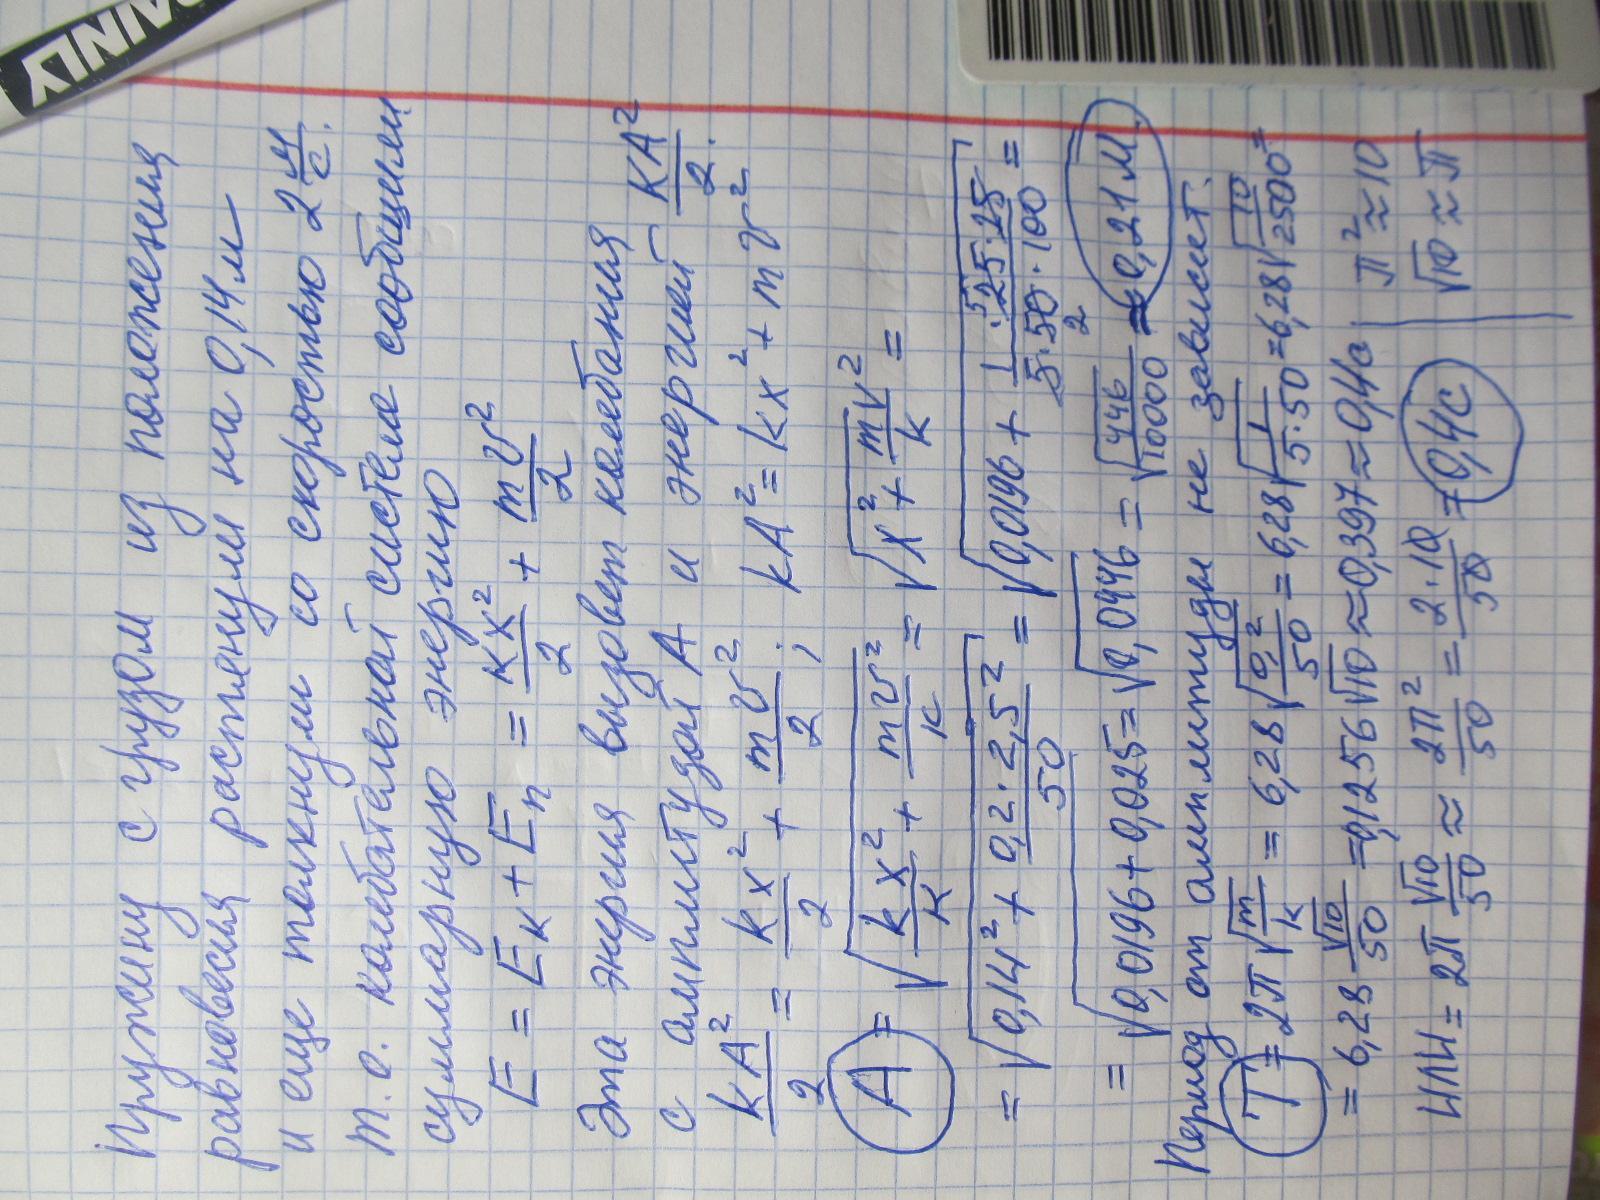 Пружину с грузом из положения
равновесия растянули на 0,14 м
и еще толкнули со скоростью 2 м/с.
т.о. колебательной системе сообщили
суммарную энергию
E = Eк + Eп = kx²/2 + mv²/2
Эта энергия вызовет колебания
с амплитудой A и энергией kA²/2.
kA²/2 = kx²/2 + mv²/2; kA² = kx² + mv²
A = √(kx²/k + mv²/k) = √(x² + mv²/k) =
= √(0,14² + 0,2·2,5²/50) = √(0,0196 + 1·25·25/5·50·100) =
= √(0,0196 + 0,025) = √0,0446 = √(446/10000) = 0,21 м
Период от амплитуды не зависит.
T = 2π√(m/k) = 6,28√(0,2/50) = 6,28√(1/5·50) = 6,28√(10/2500) =
= 6,28 √10/50 = 0,1256√10 ≈ 0,397 ≈ 0,4с π² ≈ 10
или = 2π √10/50 ≈ 2π²/50 = 2·10/50 = 0,4с √10 ≈ π